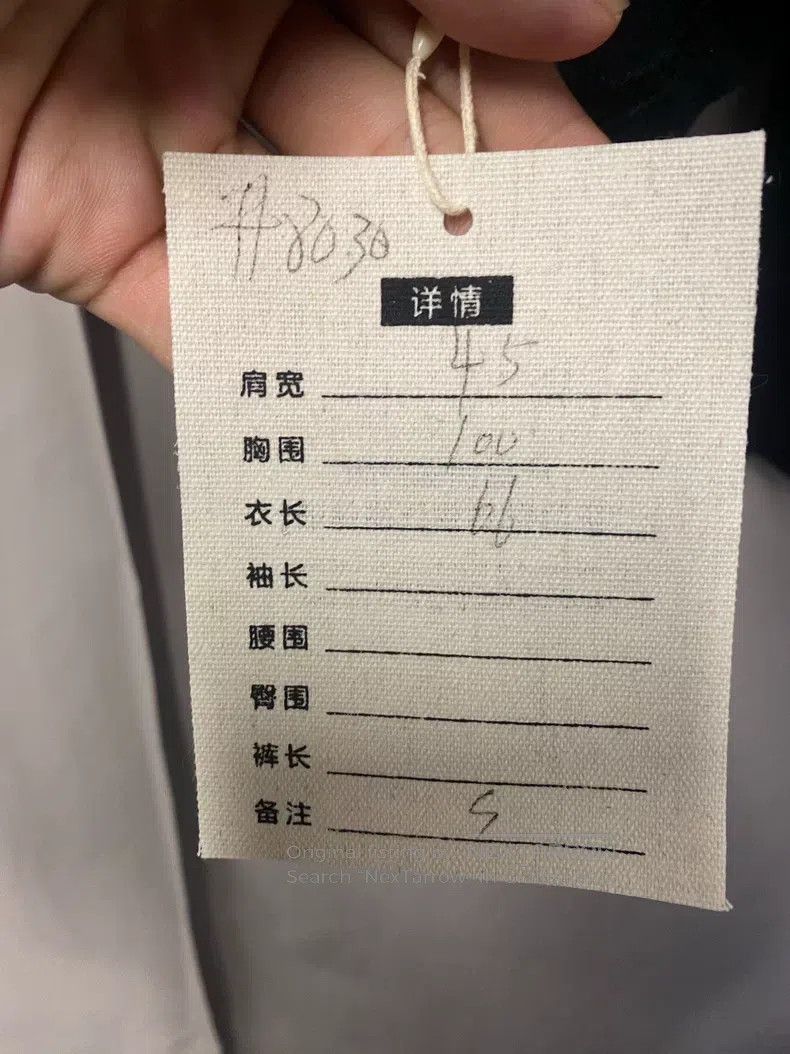 #8030
详情
肩宽 45
胸围 100
衣长 66
袖长
腰围
臀围
裤长
备注 S
Original listing
Search "NexTarrow